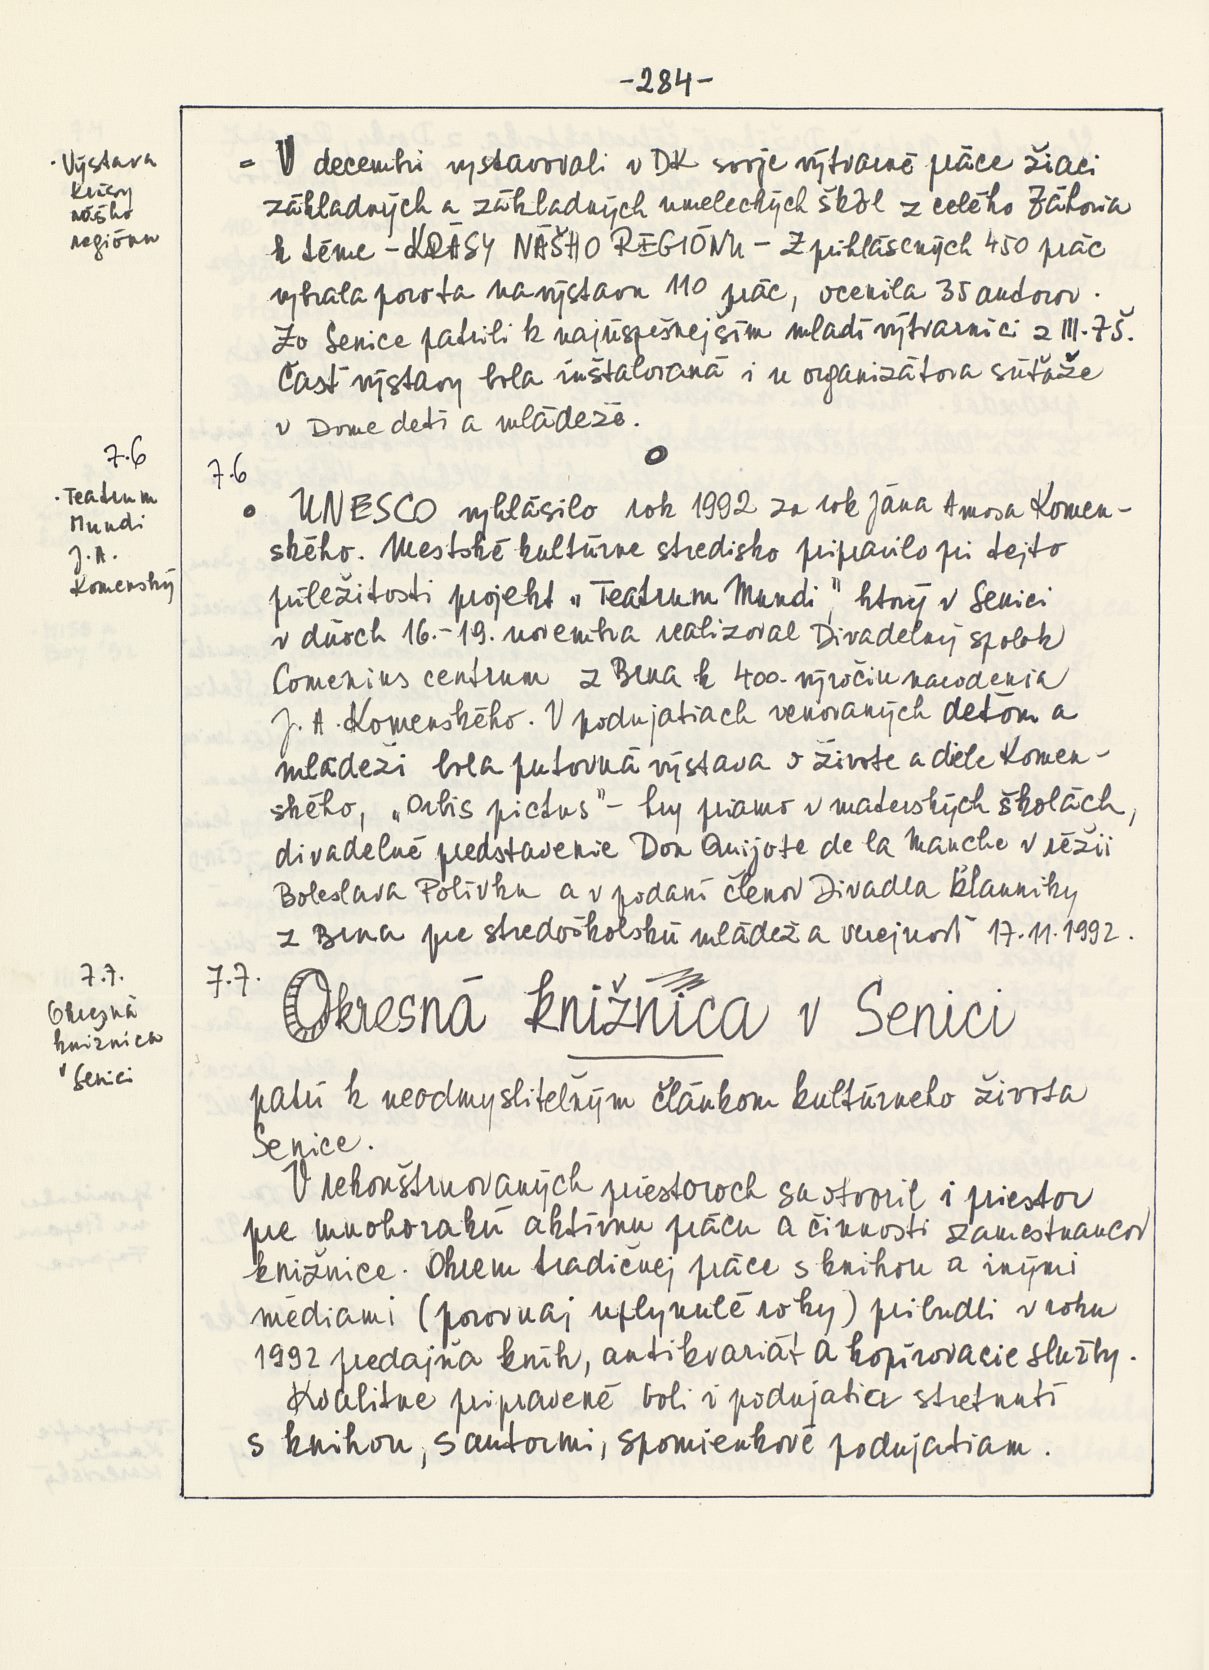 -284-
· Výstava
krásy
nášho
regiónu
- V decembri vystavovali v DK svoje výtvarné práce žiaci
základných a základných umeleckých škôl z celého Záhoria
k téme - KRÁSY NÁŠHO REGIÓNU - Z prihlásených 450 prác
vybrala porota na výstavu 110 prác, ocenila 35 autorov.
Zo Senice patrili k najúspešnejším mladí výtvarníci z III. ZŠ.
Časť výstavy bola inštalovaná i u organizátora súťaže
v Dome detí a mládeže.
7.6
· Teatrum
Mundi
J. A.
Komenský
7.6
• UNESCO vyhlásilo rok 1992 za rok Jána Amosa Komen-
ského. Mestské kultúrne stredisko pripravilo pri tejto
príležitosti projekt „Teatrum Mundi", ktorý v Senici
v dňoch 16.-19. novembra realizoval Divadelný spolok
Comenius centrum z Brna k 400. výročiu narodenia
J. A. Komenského. V podujatiach venovaných deťom a
mládeži bola putovná výstava o živote a diele Komen-
ského, „Orbis pictus" - hry priamo v materských školách,
divadelné predstavenie Don Quijote de la Manche v réžii
Boleslava Polívku a v podaní členov Divadla
z Brna pre stredoškolskú mládež a verejnosť 17.11.1992.
7.7.
Okresná
knižnica
v Senici
7.7. Okresná knižnica v Senici
patrí k neodmysliteľným článkom kultúrneho života
Senice.
V rekonštruovaných priestoroch sa otvoril i priestor
pre mnohorakú aktívnu prácu a činnosti zamestnancov
knižnice. Okrem tradičnej práce s knihou a inými
médiami (porovnaj uplynulé roky) pribudli v roku
1992 predajňa kníh, antikvariát a kopírovacie služby.
Kvalitne pripravené boli i podujatia stretnutí
s knihou, s autormi, spomienkové podujatiam.